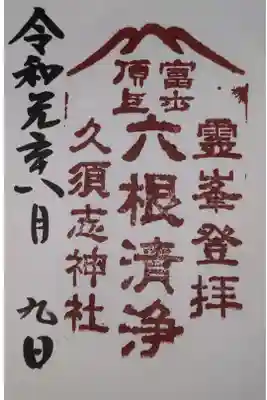 霊峯登拝
富士
頂上
六根清浄
久須志神社
令和元年八月 九日